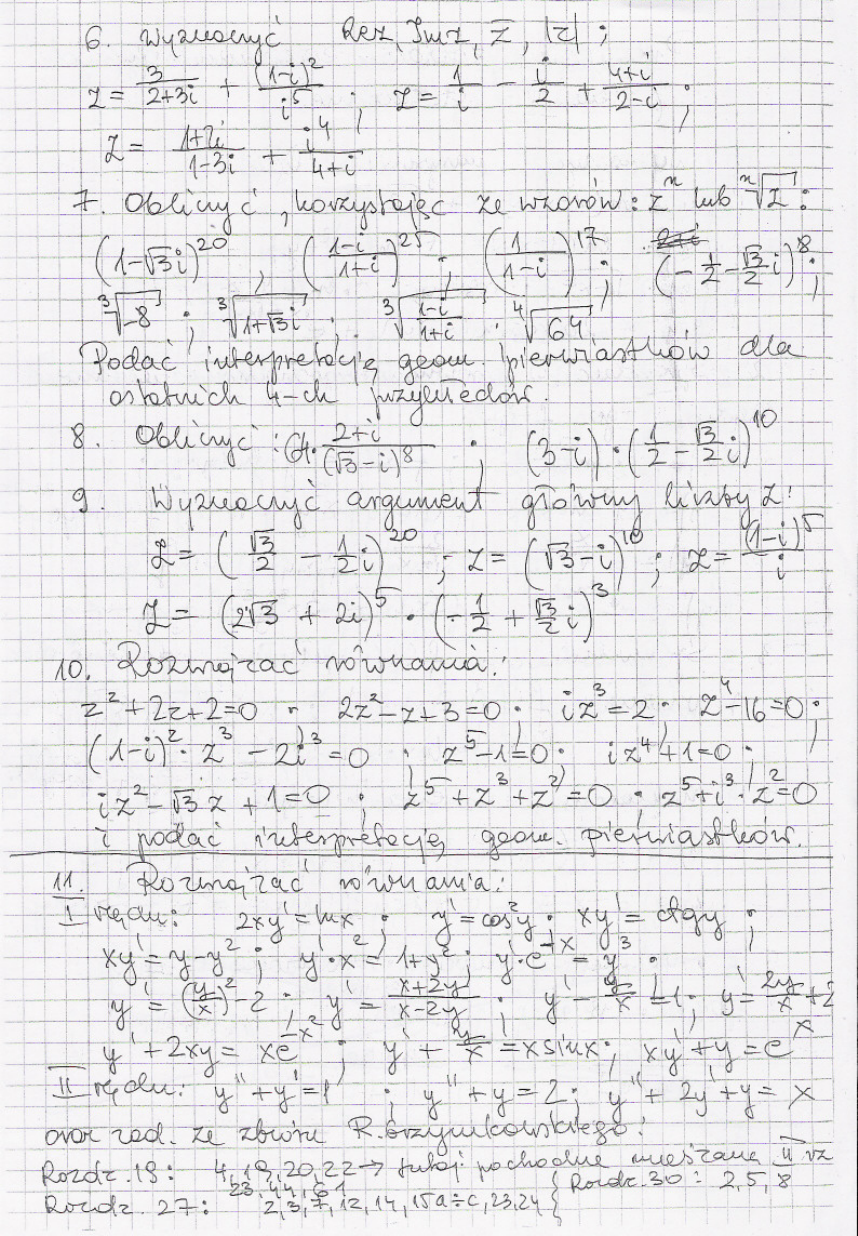 6. Wyznaczyć Rez, Imz, z̅, |z| ;
z = 3/(2+3i) + (1-i)²/i⁵ ; z = 1/i - i/2 + (4+i)/(2-i) ;
z = (1+2i)/(1-3i) + i⁴/(4+i)
7. Obliczyć, korzystając ze wzorów: zⁿ lub ⁿ√z :
(1-√3i)²⁰ , ((1-i)/(1+i))²⁵ ; (1/(1-i))¹⁷ ; (-1/2 - √3/2 i)¹⁸ ;
³√-8 ; ³√(1+√3i) ; ³√((1-i)/(1+i)) . ⁴√64
Podać interpretację geom. pierwiastków dla
ostatnich 4-ch przykładów.
8. Obliczyć : 64·(2+i)/(√3-i)⁸ ; (3-i)·(1/2 - √3/2 i)¹⁰
9. Wyznaczyć argument główny liczby z:
z = (√3/2 - 1/2 i)²⁰ ; z = (√3-i)¹⁰ ; z = (1-i)⁵/i
z = (2√3 + 2i)⁵ · (-1/2 + √3/2 i)³
10. Rozwiązać równania:
z²+2z+2=0 ; 2z²-z+3=0 ; iz³=2 ; z⁴-16=0 ;
(1-i)²·z³ - 2i³=0 ; z⁵-1=0 ; iz⁴+1=0 ;
iz²-√3z+1=0 ; z⁵+z³+z²=0 ; z⁵+i³·z²=0
i podać interpretację geom. pierwiastków.
11. Rozwiązać równania:
I rzędu: 2xy'=lnx ; y'=cos²y ; xy'=ctgy ;
xy'=y-y² ; y'·x²=1+y² ; y'·e⁻ˣ=y³ ;
y'=(y/x)²-2 ; y'=(x+2y)/(x-2y) ; y'-y/x=1 ; y'=2y/x+2
y'+2xy=xe^(-x²) ; y'+y/x=xsinx ; xy'+y=eˣ
II rzędu: y''+y'=1 ; y''+y=2 ; y''+2y'+y=x
oraz zad. ze zbioru R.
Rozdz. 19: 4, 19, 20, 22 → tutaj pochodne mieszane II rz
23, 44, 61 { Rozdz. 30 : 2, 5, 8
Rozdz. 27: 2, 3, 7, 12, 14, 15a÷c, 23, 24